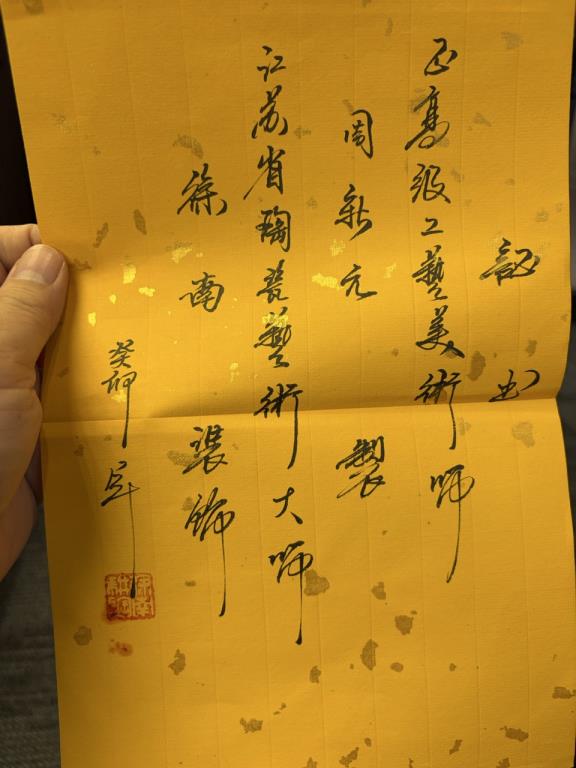 證书
正高级工藝美術师
周新元 製
江苏省陶瓷藝術大师
徐南 装饰
癸卯年